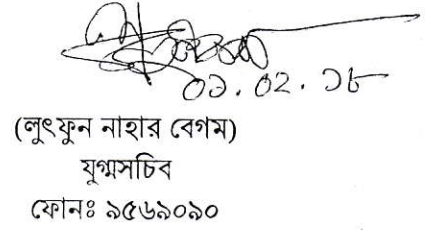 ০১.০২.১৮
(লুৎফুন নাহার বেগম)
যুগ্মসচিব
ফোনঃ ৯৫৬৯০৯০